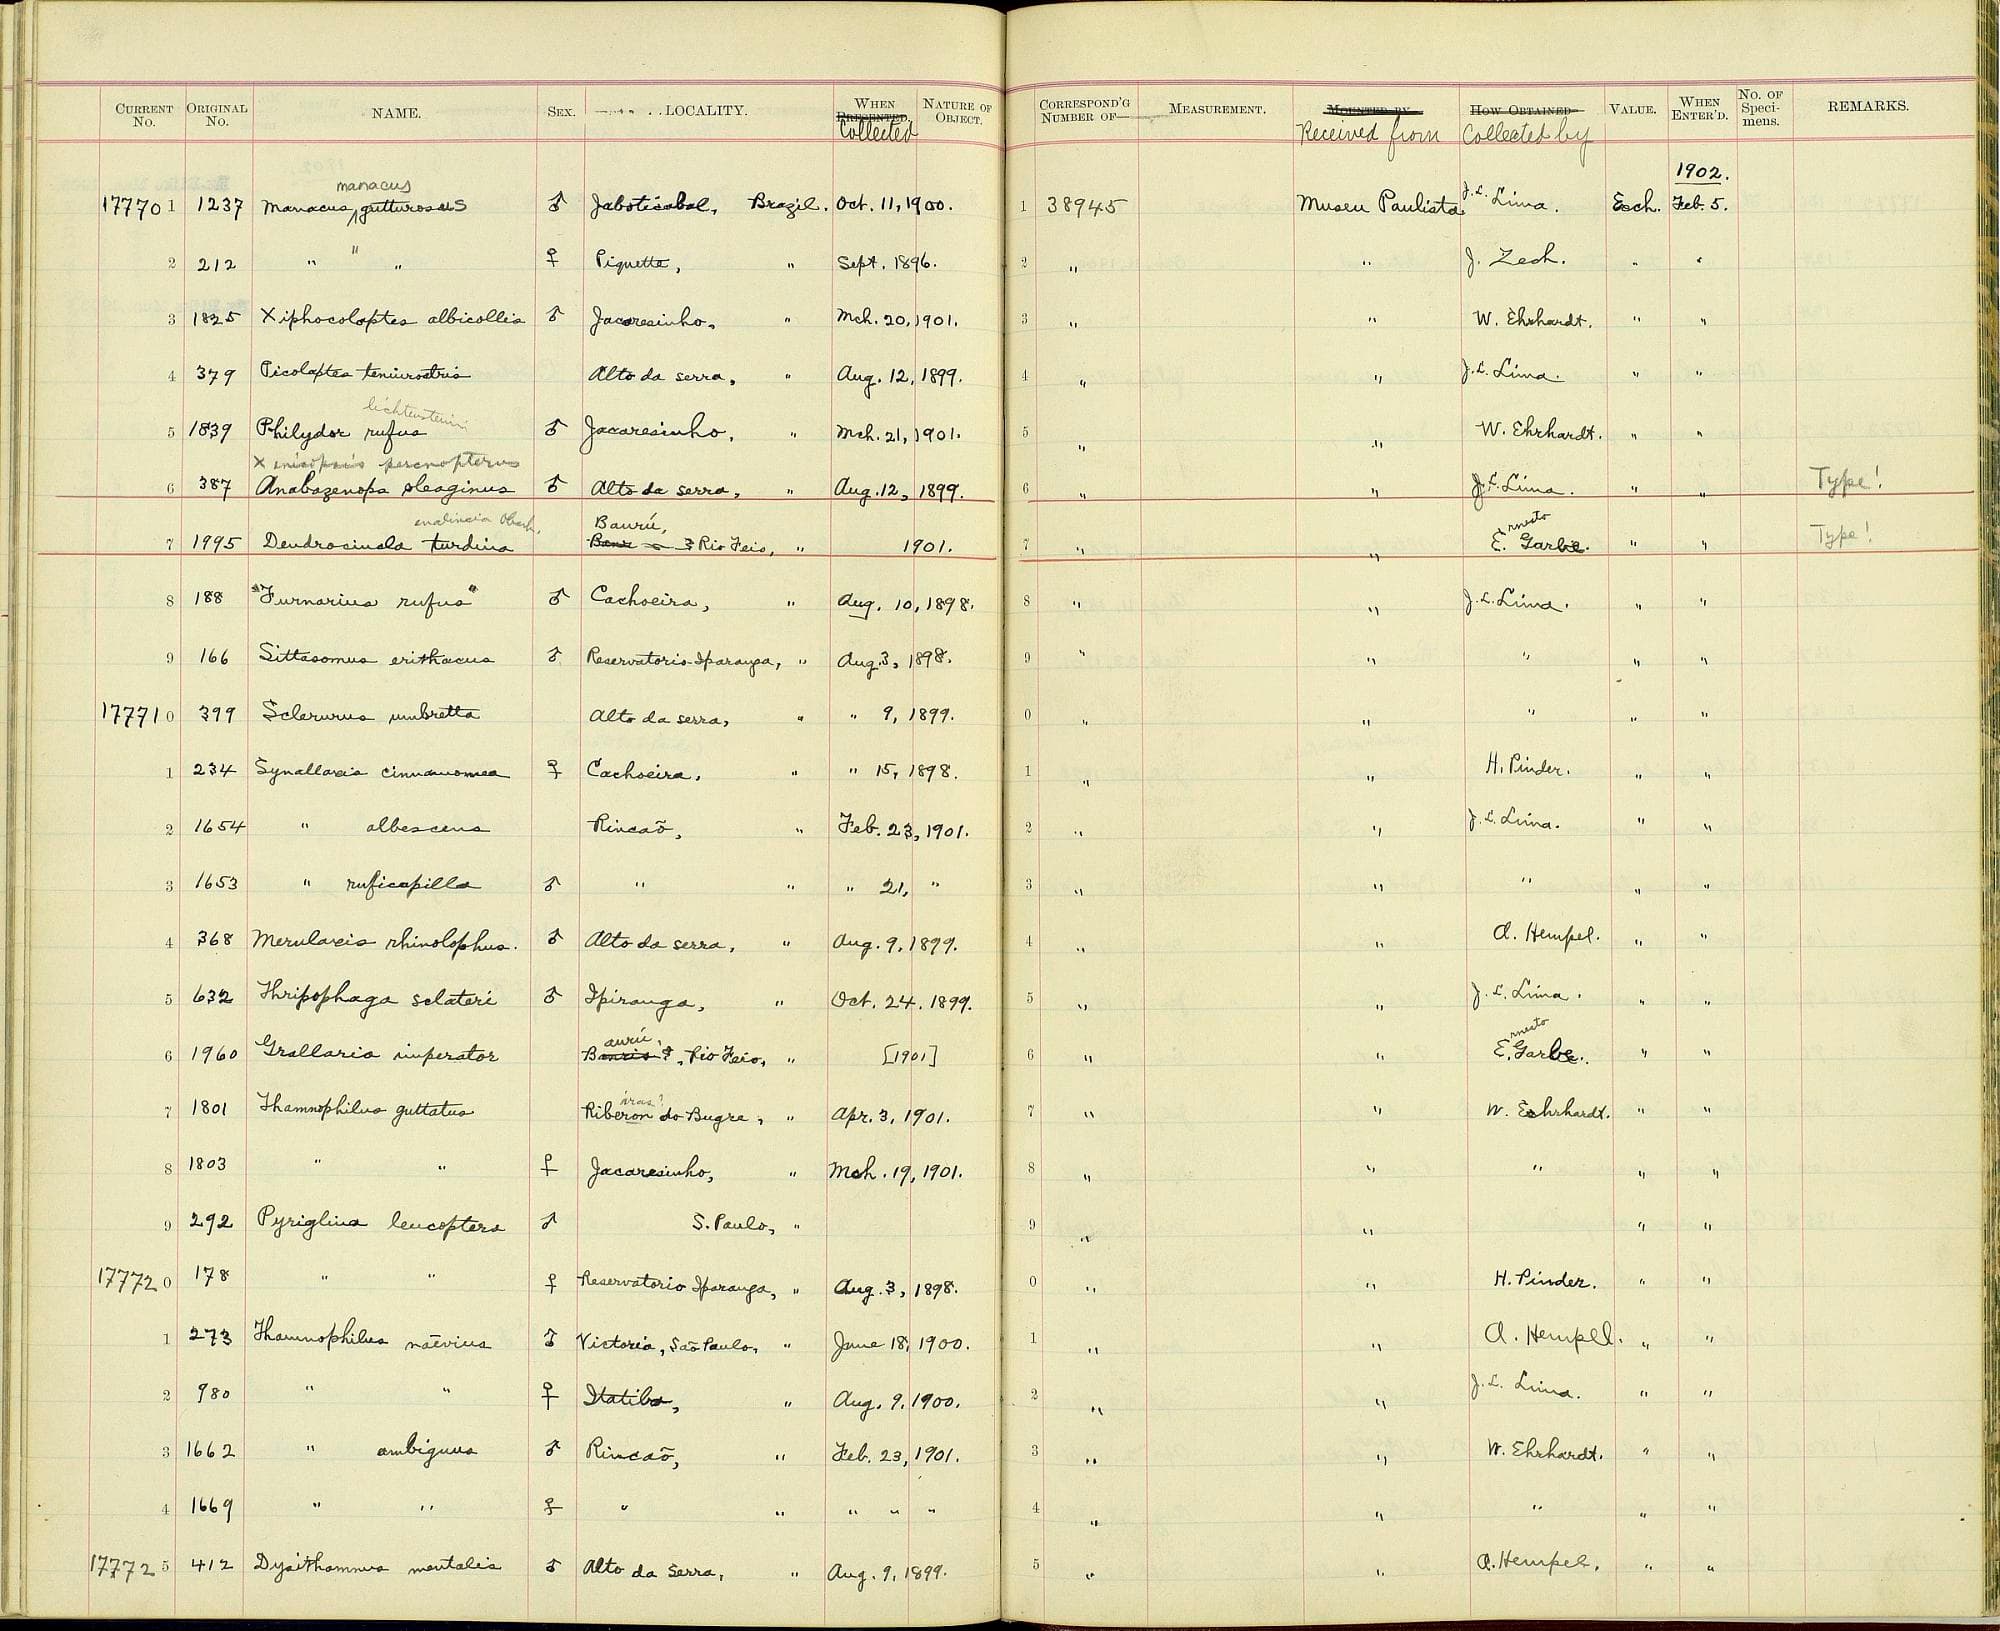 CURRENT No. ORIGINAL No. NAME. SEX. LOCALITY. WHEN PRESENTED. Collected NATURE OF OBJECT. CORRESPOND'G NUMBER OF— MEASUREMENT. MOUNTED BY Received from HOW OBTAINED Collected by VALUE. WHEN ENTER'D. No. OF Speci- mens. REMARKS.
1902.
17770 1 1237 Manacus manacus gutturosus ♂ Jaboticabal, Brazil. Oct. 11, 1900. 1 38945 Museu Paulista J. L. Lima. Exch. Feb. 5.
2 212 " " " ♀ Piquette, " Sept. 1896. 2 " " J. Zech. " "
3 1825 Xiphocolaptes albicollis ♂ Jacaresinho, " Mch. 20, 1901. 3 " " W. Ehrhardt. " "
4 379 Picolaptes tenuirostris Alto da serra, " Aug. 12, 1899. 4 " " J. L. Lima. " "
lichtensteini
5 1839 Philydor rufus ♂ Jacaresinho, " Mch. 21, 1901. 5 " " W. Ehrhardt. " "
percnopterus
6 387 Anabazenops oleaginus ♂ Alto da serra, " Aug. 12, 1899. 6 " " J. L. Lima. " " Type!
Oberh. Baurú, rnesto
7 1995 Dendrocincla turdina Rio Feio, " 1901. 7 " " E. Garbe. " " Type!
8 188 "Furnarius rufus" ♂ Cachoeira, " Aug. 10, 1898. 8 " " J. L. Lima. " "
9 166 Sittasomus erithacus ♂ Reservatorio-Iparanga, " Aug. 3, 1898. 9 " " " " "
17771 0 399 Sclerurus umbretta Alto da serra, " " 9, 1899. 0 " " " " "
1 234 Synallaxis cinnamomea ♀ Cachoeira, " " 15, 1898. 1 " " H. Pinder. " "
2 1654 " albescens Rincaõ, " Feb. 23, 1901. 2 " " J. L. Lima. " "
3 1653 " ruficapilla ♂ " " " 21, " 3 " " " " "
4 368 Merulaxis rhinolophus. ♂ Alto da serra, " Aug. 9, 1899. 4 " " A. Hempel. " "
5 632 Thripophaga sclateri ♂ Ipiranga, " Oct. 24. 1899. 5 " " J. L. Lima. " "
aurú, rnesto
6 1960 Grallaria imperator Bauris?, Rio Feio, " [1901] 6 " " E. Garbe. " "
7 1801 Thamnophilus guttatus Riberon do Bugre, " Apr. 3, 1901. 7 " " W. Ehrhardt. " "
8 1803 " " ♀ Jacaresinho, " Mch. 19, 1901. 8 " " " " "
9 292 Pyriglina leucoptera ♂ S. Paulo, " 9 " " " "
17772 0 178 " " ♀ Reservatorio Iparanga, " Aug. 3, 1898. 0 " " H. Pinder. " "
1 273 Thamnophilus naevius ♂ Victoria, São Paulo, " June 18, 1900. 1 " " A. Hempel. " "
2 980 " " ♀ Itatiba, " Aug. 9. 1900. 2 " " J. L. Lima. " "
3 1662 " ambiguus ♂ Rincaõ, " Feb. 23, 1901. 3 " " W. Ehrhardt. " "
4 1669 " " ♀ " " " " " 4 " " " " "
17772 5 412 Dysithamnus mentalis ♂ Alto da Serra, " Aug. 9, 1899. 5 " " A. Hempel. " "